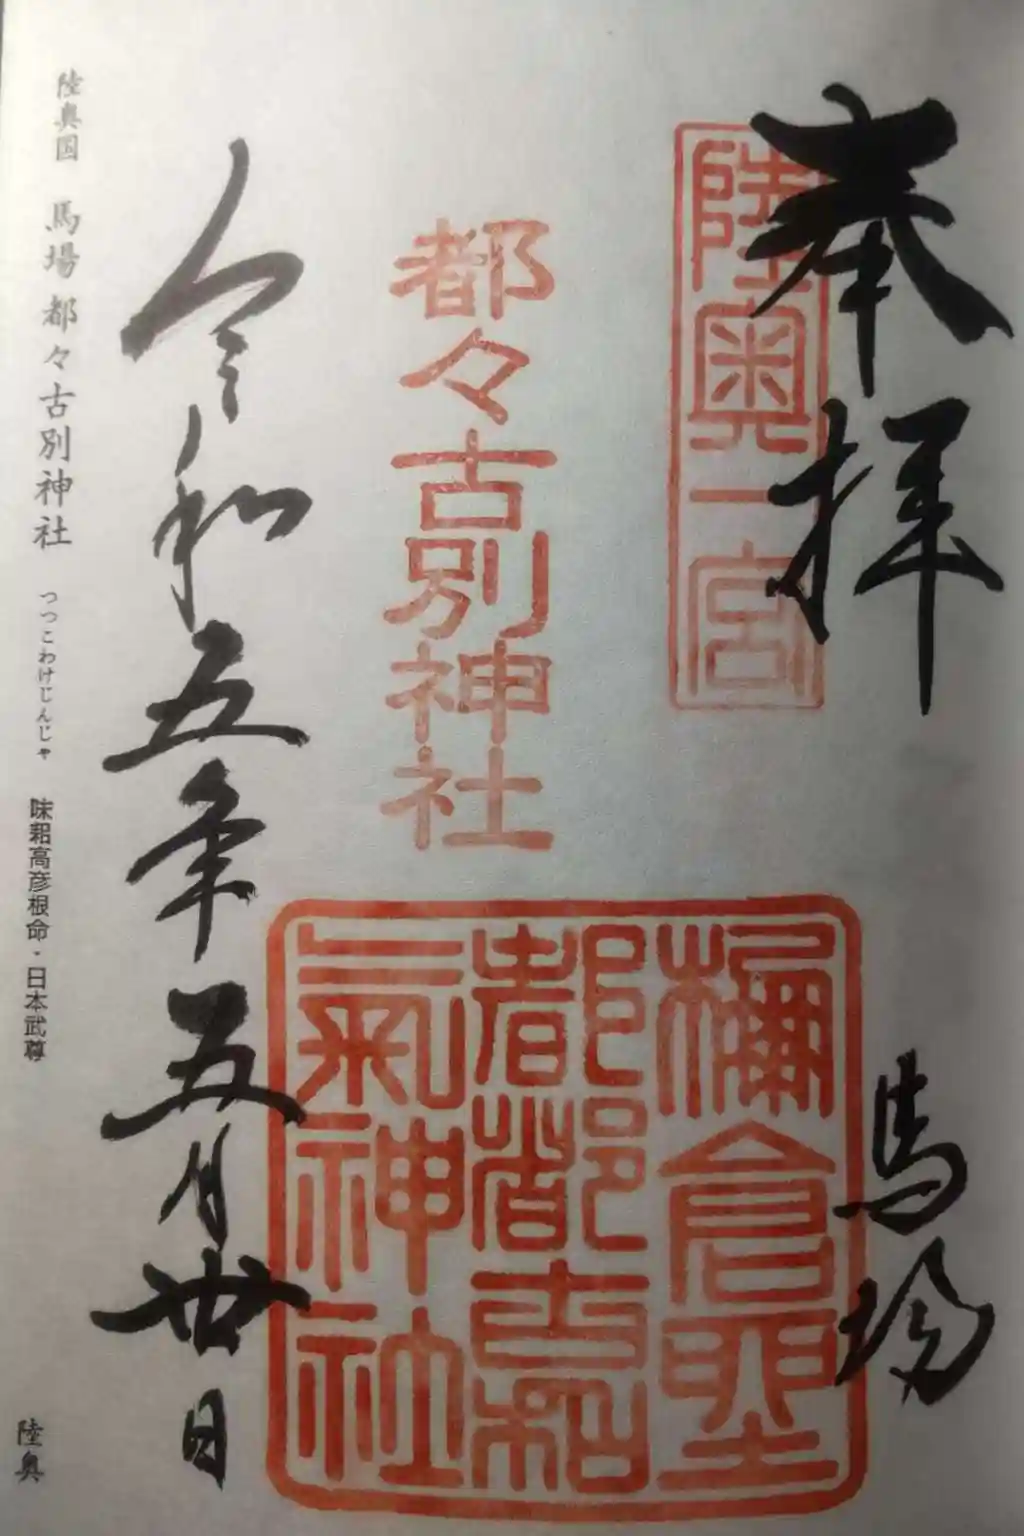 奉拝
馬場
陸奥一宮
都々古別神社
令和五年五月丗日
陸奥国 馬場都々古別神社 つつこわけじんじゃ 味耜高彦根命・日本武尊
陸奥